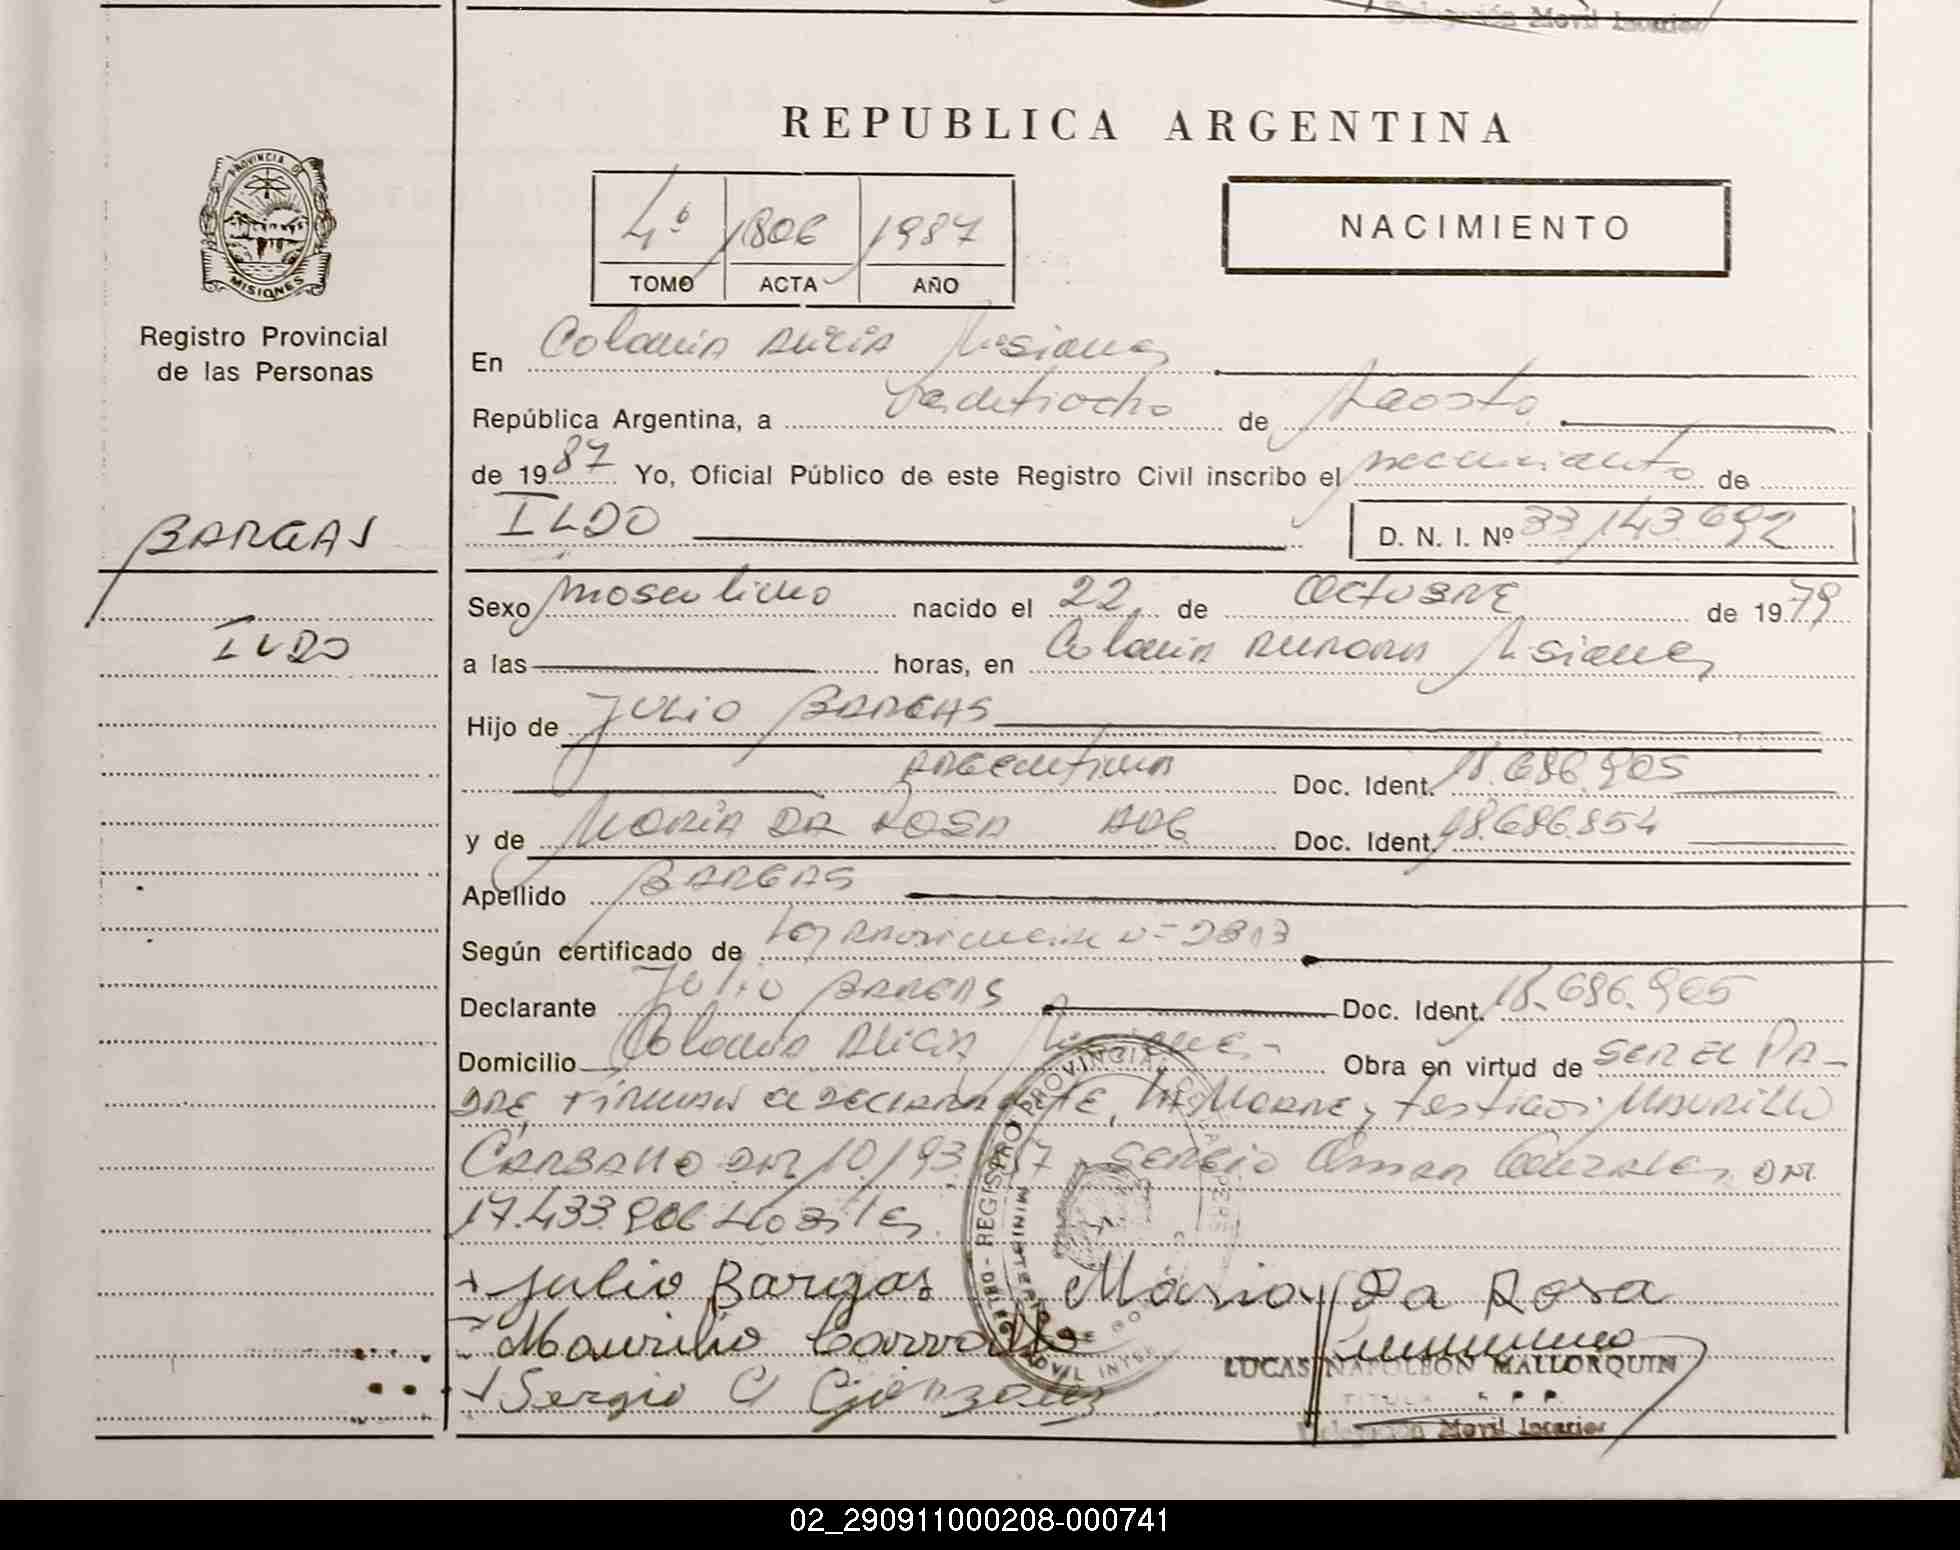 Delegación Movil Interior
REPUBLICA ARGENTINA
PROVINCIA DE
MISIONES
4º 1806 1987
TOMO ACTA AÑO
NACIMIENTO
Registro Provincial
de las Personas
En Colonia Alicia Misiones
República Argentina, a veintiocho de Agosto
de 1987 Yo, Oficial Público de este Registro Civil inscribo el nacimiento de
ILDO D. N. I. Nº 33.143.692
BARGAS
ILDO
Sexo masculino nacido el 22 de Octubre de 1979
a las horas, en Colonia Aurora Misiones
Hijo de Julio BARGAS
Argentina Doc. Ident. 18.686.905
y de María DA ROSA ARG Doc. Ident. 18.686.854
Apellido BARGAS
Según certificado de Ley 2813
Declarante Julio BARGAS Doc. Ident. 18.686.905
Domicilio Colonia Alicia Misiones Obra en virtud de SER EL PA-
DRE, Firman el declarante, la Madre y testigos: Maurilio
DNI 10.193. 7 Sergio Omar Gonzalez DNI.
17.433.906
Julio Bargas Maria Da Rosa
Maurilio
Sergio O Gonzalez
LUCAS NAPOLEON MALLORQUIN
Delegación Movil Interior
REGISTRO PROVINCIAL
MINISTERIO DE GO
02_290911000208-000741